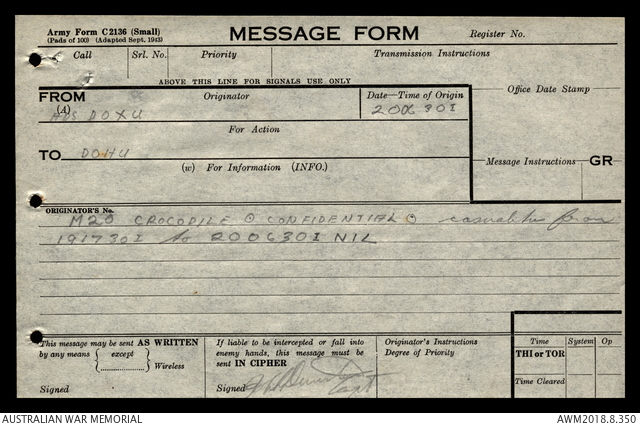 Army Form C2136 (Small)
(Pads of 100) (Adapted Sept. 1943)
MESSAGE FORM
Register No.
Call
Srl. No.
Priority
Transmission Instructions
ABOVE THIS LINE FOR SIGNALS USE ONLY
FROM
(A)
Originator
Date—Time of Origin
Office Date Stamp
DOXU
200630I
For Action
TO
DOHU
(w) For Information (INFO.)
Message Instructions
GR
ORIGINATOR'S No.
M20 CROCODILE ⊙ CONFIDENTIAL ⊙ casualties from
191730I to 200630I NIL
This message may be sent AS WRITTEN
by any means
except
Wireless
Signed
If liable to be intercepted or fall into
enemy hands, this message must be
sent IN CIPHER
Signed
Capt
Originator's Instructions
Degree of Priority
Time
System
Op
THI or TOR
Time Cleared
AUSTRALIAN WAR MEMORIAL
AWM2018.8.350